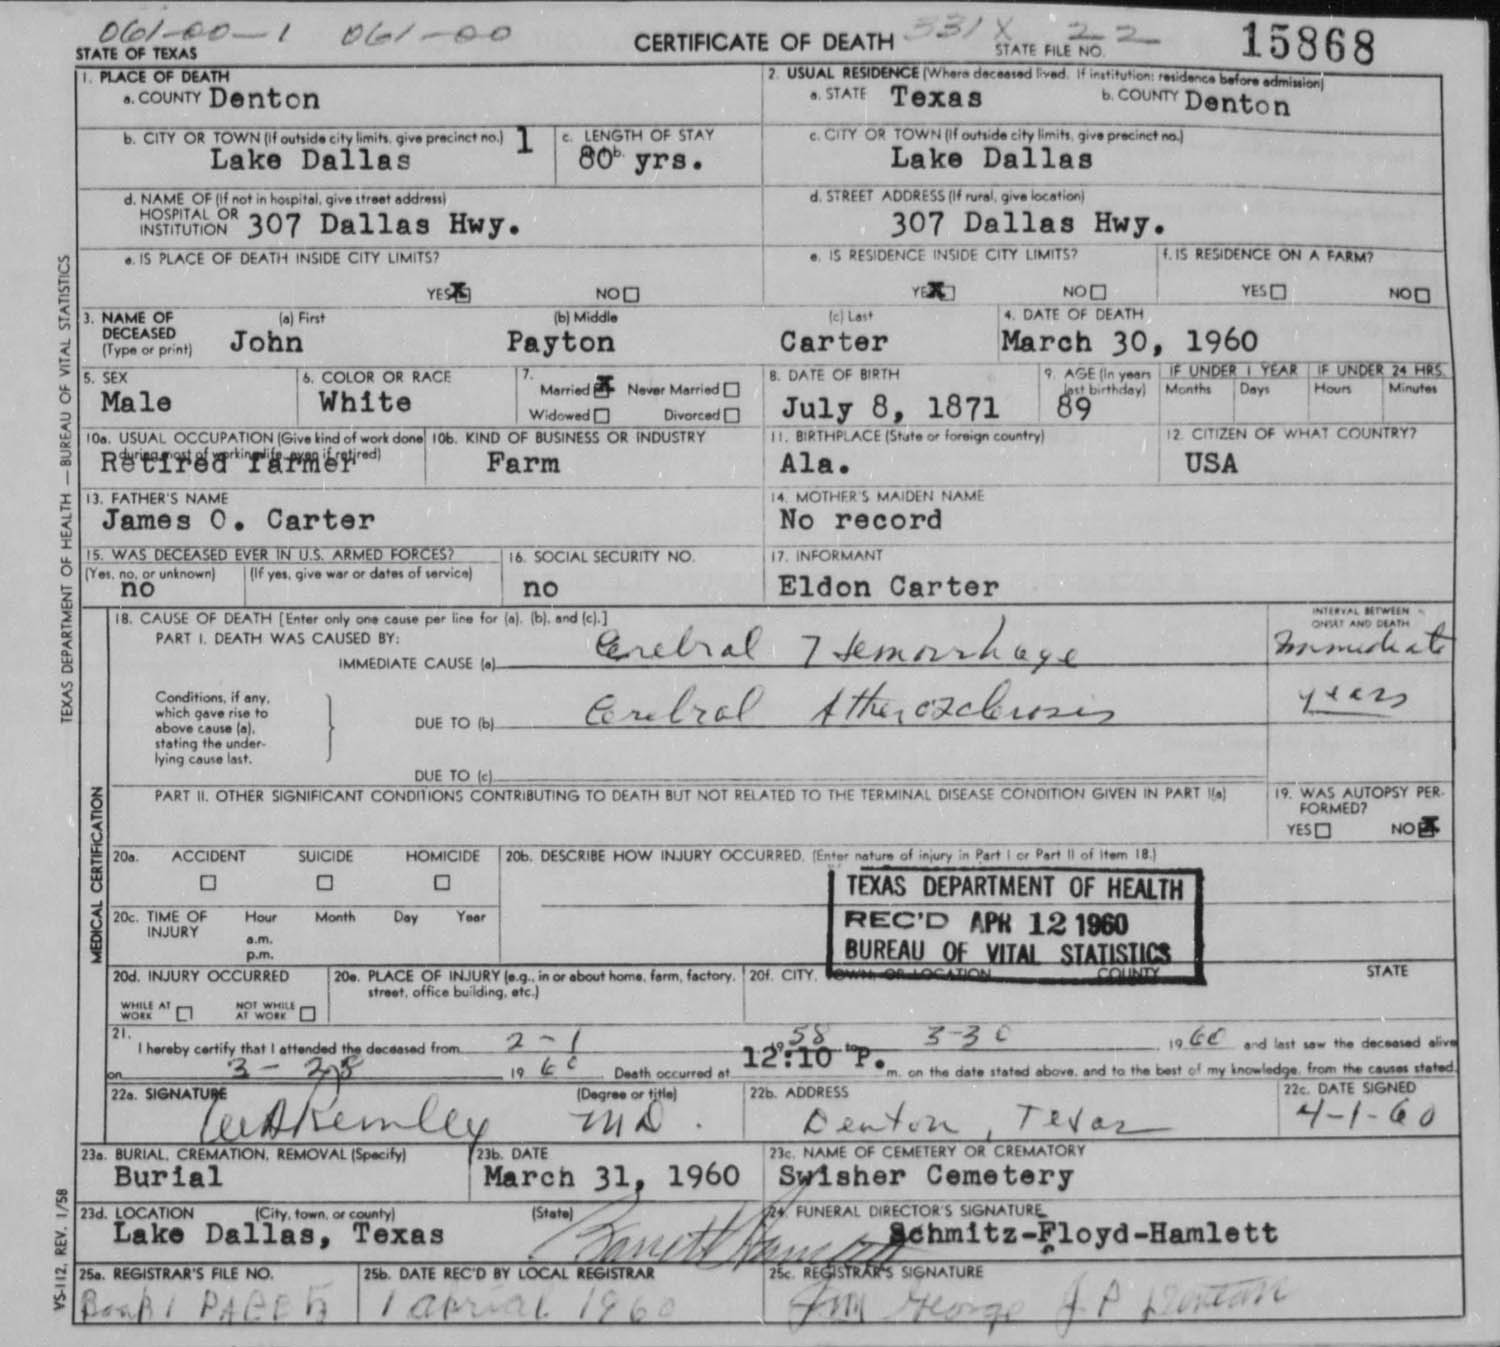 061-00-1 061-00 331X 22
STATE OF TEXAS CERTIFICATE OF DEATH STATE FILE NO. 15868
1. PLACE OF DEATH
a. COUNTY Denton
2. USUAL RESIDENCE (Where deceased lived. If institution: residence before admission)
a. STATE Texas b. COUNTY Denton
b. CITY OR TOWN (If outside city limits, give precinct no.) 1
Lake Dallas
c. LENGTH OF STAY
80 yrs.
c. CITY OR TOWN (If outside city limits, give precinct no.)
Lake Dallas
d. NAME OF (If not in hospital, give street address)
HOSPITAL OR
INSTITUTION 307 Dallas Hwy.
d. STREET ADDRESS (If rural, give location)
307 Dallas Hwy.
e. IS PLACE OF DEATH INSIDE CITY LIMITS?
YES X NO
e. IS RESIDENCE INSIDE CITY LIMITS?
YES X NO
f. IS RESIDENCE ON A FARM?
YES NO
3. NAME OF DECEASED (Type or print)
(a) First (b) Middle (c) Last
John Payton Carter
4. DATE OF DEATH
March 30, 1960
5. SEX
Male
6. COLOR OR RACE
White
7. Married X Never Married
Widowed Divorced
8. DATE OF BIRTH
July 8, 1871
9. AGE (In years last birthday)
89
IF UNDER 1 YEAR IF UNDER 24 HRS.
Months Days Hours Minutes
10a. USUAL OCCUPATION (Give kind of work done during most of working life, even if retired)
Retired farmer
10b. KIND OF BUSINESS OR INDUSTRY
Farm
11. BIRTHPLACE (State or foreign country)
Ala.
12. CITIZEN OF WHAT COUNTRY?
USA
13. FATHER'S NAME
James O. Carter
14. MOTHER'S MAIDEN NAME
No record
15. WAS DECEASED EVER IN U.S. ARMED FORCES?
(Yes, no, or unknown) (If yes, give war or dates of service)
no
16. SOCIAL SECURITY NO.
no
17. INFORMANT
Eldon Carter
18. CAUSE OF DEATH [Enter only one cause per line for (a), (b), and (c).]
INTERVAL BETWEEN ONSET AND DEATH
PART I. DEATH WAS CAUSED BY:
IMMEDIATE CAUSE (a) Cerebral Hemorrhage Immediate
Conditions, if any,
which gave rise to
above cause (a),
stating the under-
lying cause last.
DUE TO (b) Cerebral Atherosclerosis years
DUE TO (c)
PART II. OTHER SIGNIFICANT CONDITIONS CONTRIBUTING TO DEATH BUT NOT RELATED TO THE TERMINAL DISEASE CONDITION GIVEN IN PART I(a)
19. WAS AUTOPSY PER-
FORMED?
YES NO X
20a. ACCIDENT SUICIDE HOMICIDE
20b. DESCRIBE HOW INJURY OCCURRED. (Enter nature of injury in Part I or Part II of Item 18.)
TEXAS DEPARTMENT OF HEALTH
REC'D APR 12 1960
BUREAU OF VITAL STATISTICS
20c. TIME OF INJURY
Hour Month Day Year
a.m.
p.m.
20d. INJURY OCCURRED
WHILE AT WORK NOT WHILE AT WORK
20e. PLACE OF INJURY (e.g., in or about home, farm, factory,
street, office building, etc.)
20f. CITY, TOWN, OR LOCATION COUNTY STATE
21.
I hereby certify that I attended the deceased from 2-1 1958 to 3-30, 1960 and last saw the deceased alive
on 3-28 1960 Death occurred at 12:10 P. m. on the date stated above, and to the best of my knowledge, from the causes stated.
22a. SIGNATURE (Degree or title)
MD.
22b. ADDRESS
Denton, Texas
22c. DATE SIGNED
4-1-60
23a. BURIAL, CREMATION, REMOVAL (Specify)
Burial
23b. DATE
March 31, 1960
23c. NAME OF CEMETERY OR CREMATORY
Swisher Cemetery
23d. LOCATION (City, town, or county) (State)
Lake Dallas, Texas
24. FUNERAL DIRECTOR'S SIGNATURE
Schmitz-Floyd-Hamlett
25a. REGISTRAR'S FILE NO.
Book 1 PAGE
25b. DATE REC'D BY LOCAL REGISTRAR
1 april 1960
25c. REGISTRAR'S SIGNATURE
George J P Denton
TEXAS DEPARTMENT OF HEALTH — BUREAU OF VITAL STATISTICS
MEDICAL CERTIFICATION
VS-112, REV. 1/58